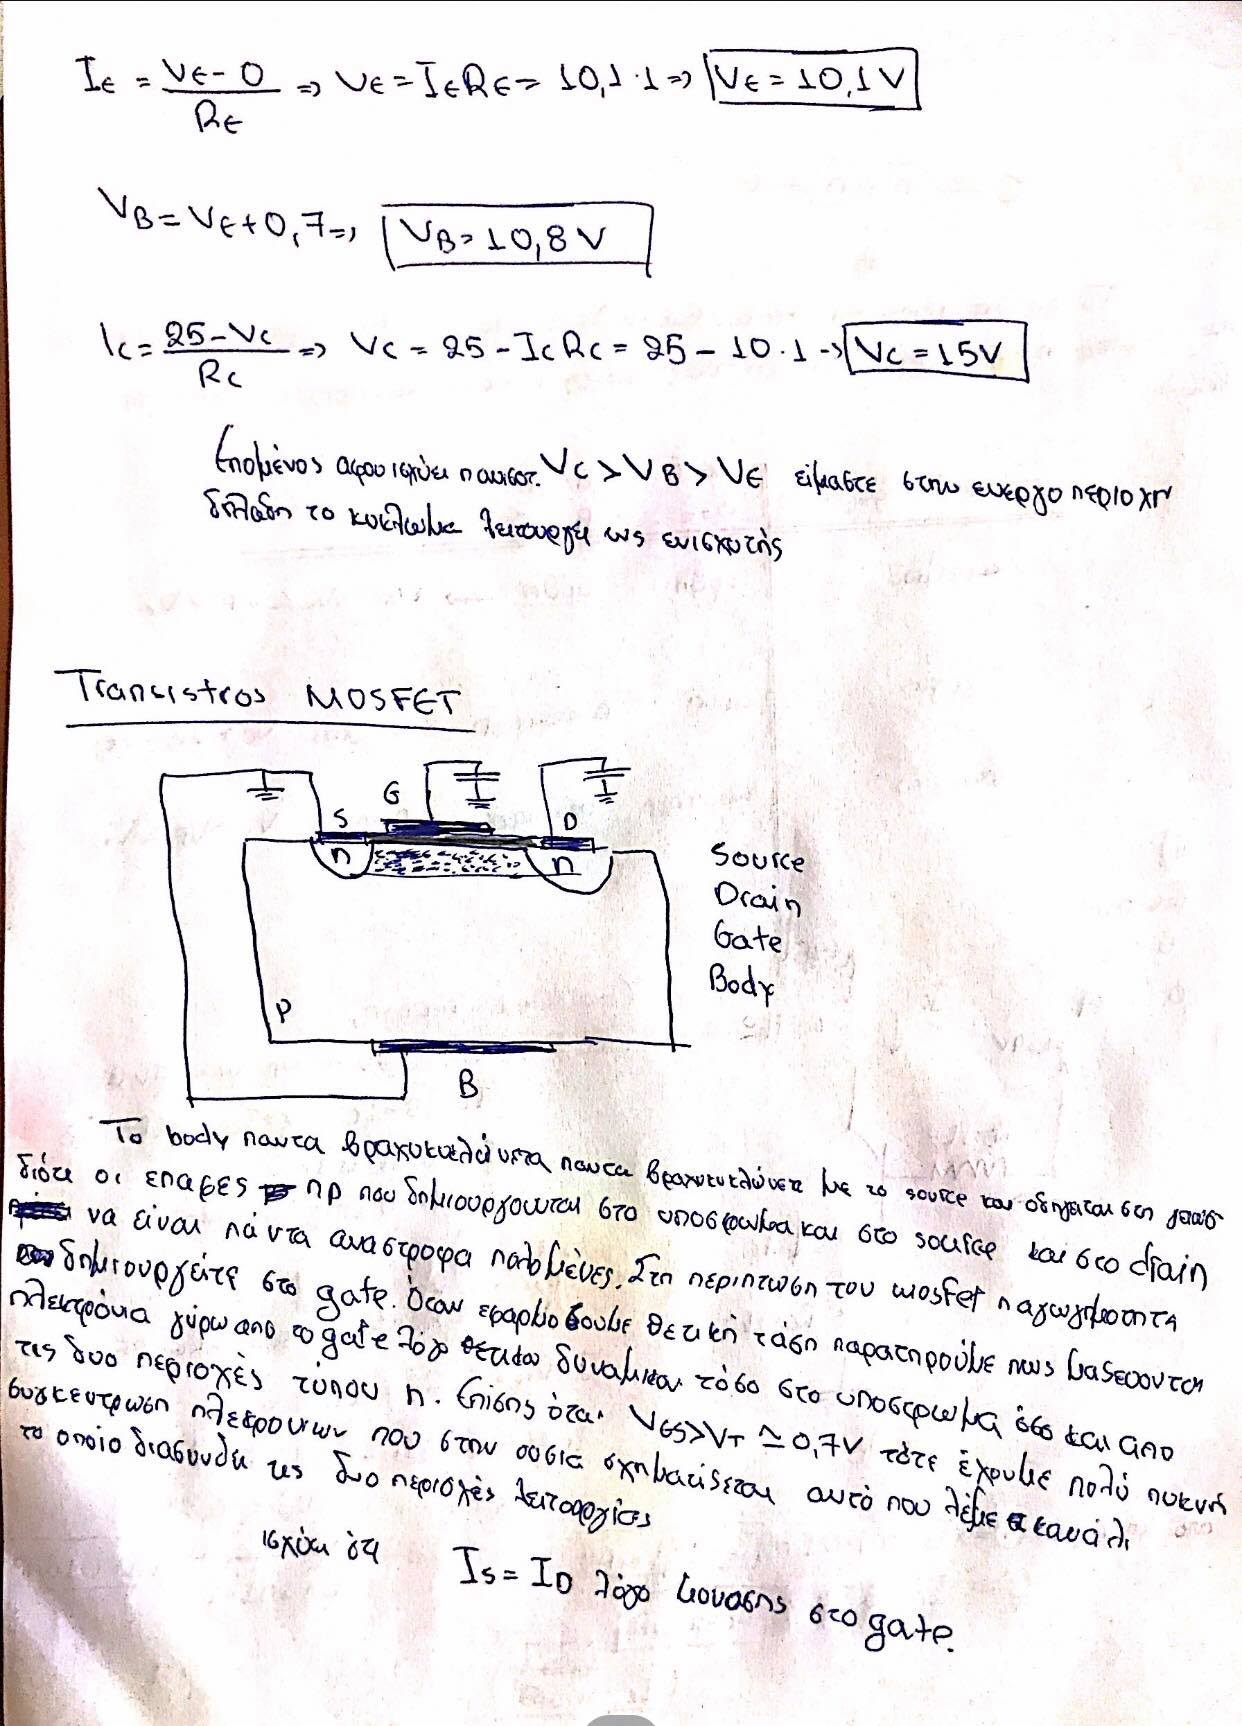 I_E = (V_E - 0) / R_E => V_E = I_E R_E = 10,1 · 1 => V_E = 10,1 V
V_B = V_E + 0,7 => V_B = 10,8 V
I_C = (25 - V_C) / R_C => V_C = 25 - I_C R_C = 25 - 10 · 1 -> V_C = 15V
Επομένος αφου ισχύει V_C > V_B > V_E είμαστε στην ενεργο περιοχη
δηλαδη το κυκλωμα λειτουργεί ως ενισχυτής
Trancistros MOSFET
G
S
D
n
n
Source
Drain
Gate
Body
P
B
Το body παντα βραχυκυκλώνεται παντα βραχυκυκλώνετε με το source και οδηγείται στη
διότι οι επαφες np που δημιουργουνται στο υποστρωμα και στο source και στο drain
να είναι πάντα αναστροφα πολωμένες. Στη περιπτωση του mosfet η αγωγιμοτητα
δημιουργείτε στο gate. Οταν εφαρμοσουμε θετική τάση παρατηρούμε πως μαζευονται
ηλεκτρόνια γύρω απο το gate λόγο θετικου δυναμικου τόσο στο υποστρωμα όσο και απο
τις δυο περιοχές τύπου n. Επίσης όταν V_GS > V_T ≃ 0,7V τότε έχουμε πολύ πυκνή
συγκεντρωση ηλεκρονιων που στην ουσια σχηματίζεται αυτό που λέμε καναλι
το οποίο διασυνδεει τις δυο περιοχές λειτουργίας
ισχύει ότι I_S = I_D λόγο μονωσης στο gate.